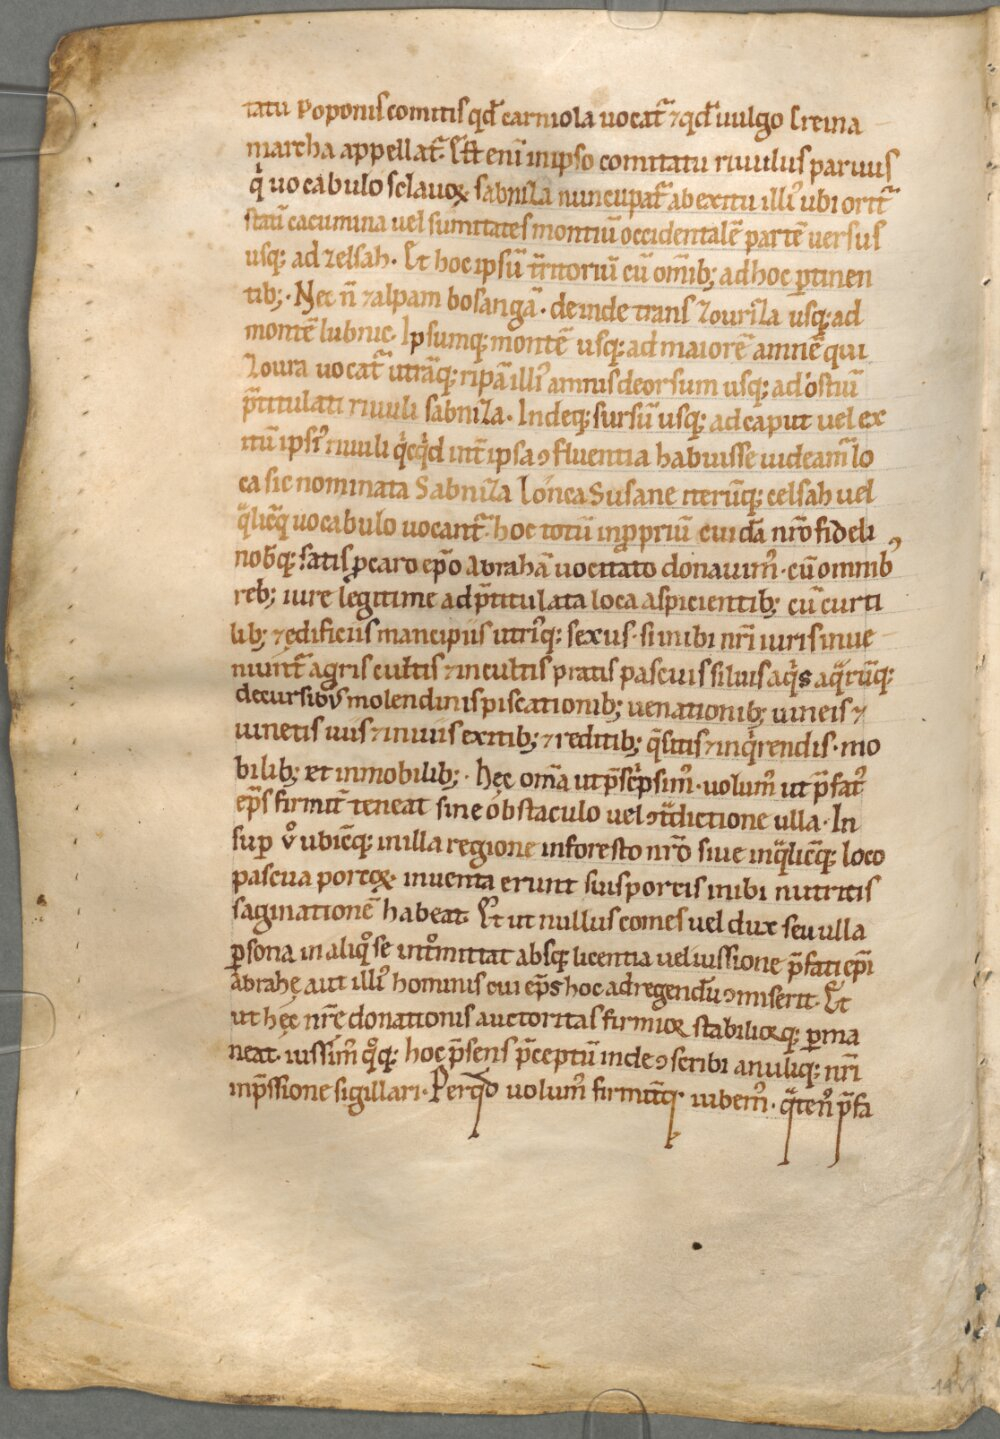 tatu Poponis comitis qđ carniola uocat᷑ ⁊ qđ uulgo Creina
marcha appellat᷑. Est eni̅ in ipso comitatu riuulus paruus
qͥ uocabulo sclauoꝝ sabniza nuncupat᷑ ab exitu illiꝰ ubi orit᷑
statī cacumina uel su̅mitates montiu̅ occidentale̅ parte̅ uersus
usq; ad zelsah. Et hoc ipsu̅ t̅ritoriu̅ cu̅ om̅ib; ad hoc ꝑtinen
tib;. Nec n̅ ⁊ alpam bosanga̅. deinde trans zouriza usq; ad
monte̅ lubnic. Ipsumq; monte̅ usq; ad maiore̅ amne̅ qui
zoura uocat᷑ utra̅q; ripa̅ illiꝰ amnis deorsum usq; ad ostiu̅
p̅titulati riuuli sabniza. Indeq; sursu̅ usq; ad caput uel ex
itu̅ ipsiꝰ riuuli qͥcqͥd int̅ ipsa ꝯfluentia habuisse uideam᷑ lo
ca sic nominata Sabniza Lonca Susane iteru̅q; celsah uel
qͣlicu̅q; uocabulo uocant᷑. hoc totu̅ in ꝓpriu̅ cuida̅ nr̅o fideli
nob̅q; satis ꝑcaro ep̅o Abraha̅ uocitato donauimꝰ. cu̅ omnibꝰ
reb; iure legitime ad p̅titulata loca aspicientib; cu̅ curti
lib; ⁊ edificiis mancipiis utriꝰq; sexus. si inibi nr̅i iuris inue
niunt᷑ agris cultis ⁊ incultis pratis pascuis siluis aqͥs aqͣru̅q;
decursibus molendinis piscationib; uenationib; uineis ⁊
uinetis uiis ⁊ inuiis exitib; ⁊ reditib; qͥsitis ⁊ inqͥrendis. mo
bilib; et inmobilib;. hęc om̅a ut p̅scͥpsimꝰ. uolumꝰ ut p̅fatꝰ
ep̅s firmit᷑ teneat sine obstaculo uel ꝯtͣdictione ulla. In
suꝑ uͦ ubicu̅q; in illa regione in foresto nr̅o siue in qͣlicu̅q; loco
pascua porcoꝝ inuenta erunt suis porcis inibi nutritis
saginatione̅ habeat. Et ut nullus comes uel dux seu ulla
ꝑsona in aliqͦ se intͦmittat absq; licentia uel iussione p̅fati ep̅i
abrahę aut illiꝰ hominis cui ep̅s hoc ad regendu̅ ꝯmiserit. Et
ut hęc nr̅e donationis auctoritas firmior stabiliorq; ꝑma
neat. iussimꝰ qͦq; hoc p̅sens p̅ceptu̅ inde ꝯscribi anuliq; nr̅i
inp̅ssione sigillari. Per qđ uolumꝰ firmit̅q; iubemꝰ. qͣtenꝰ p̅fa